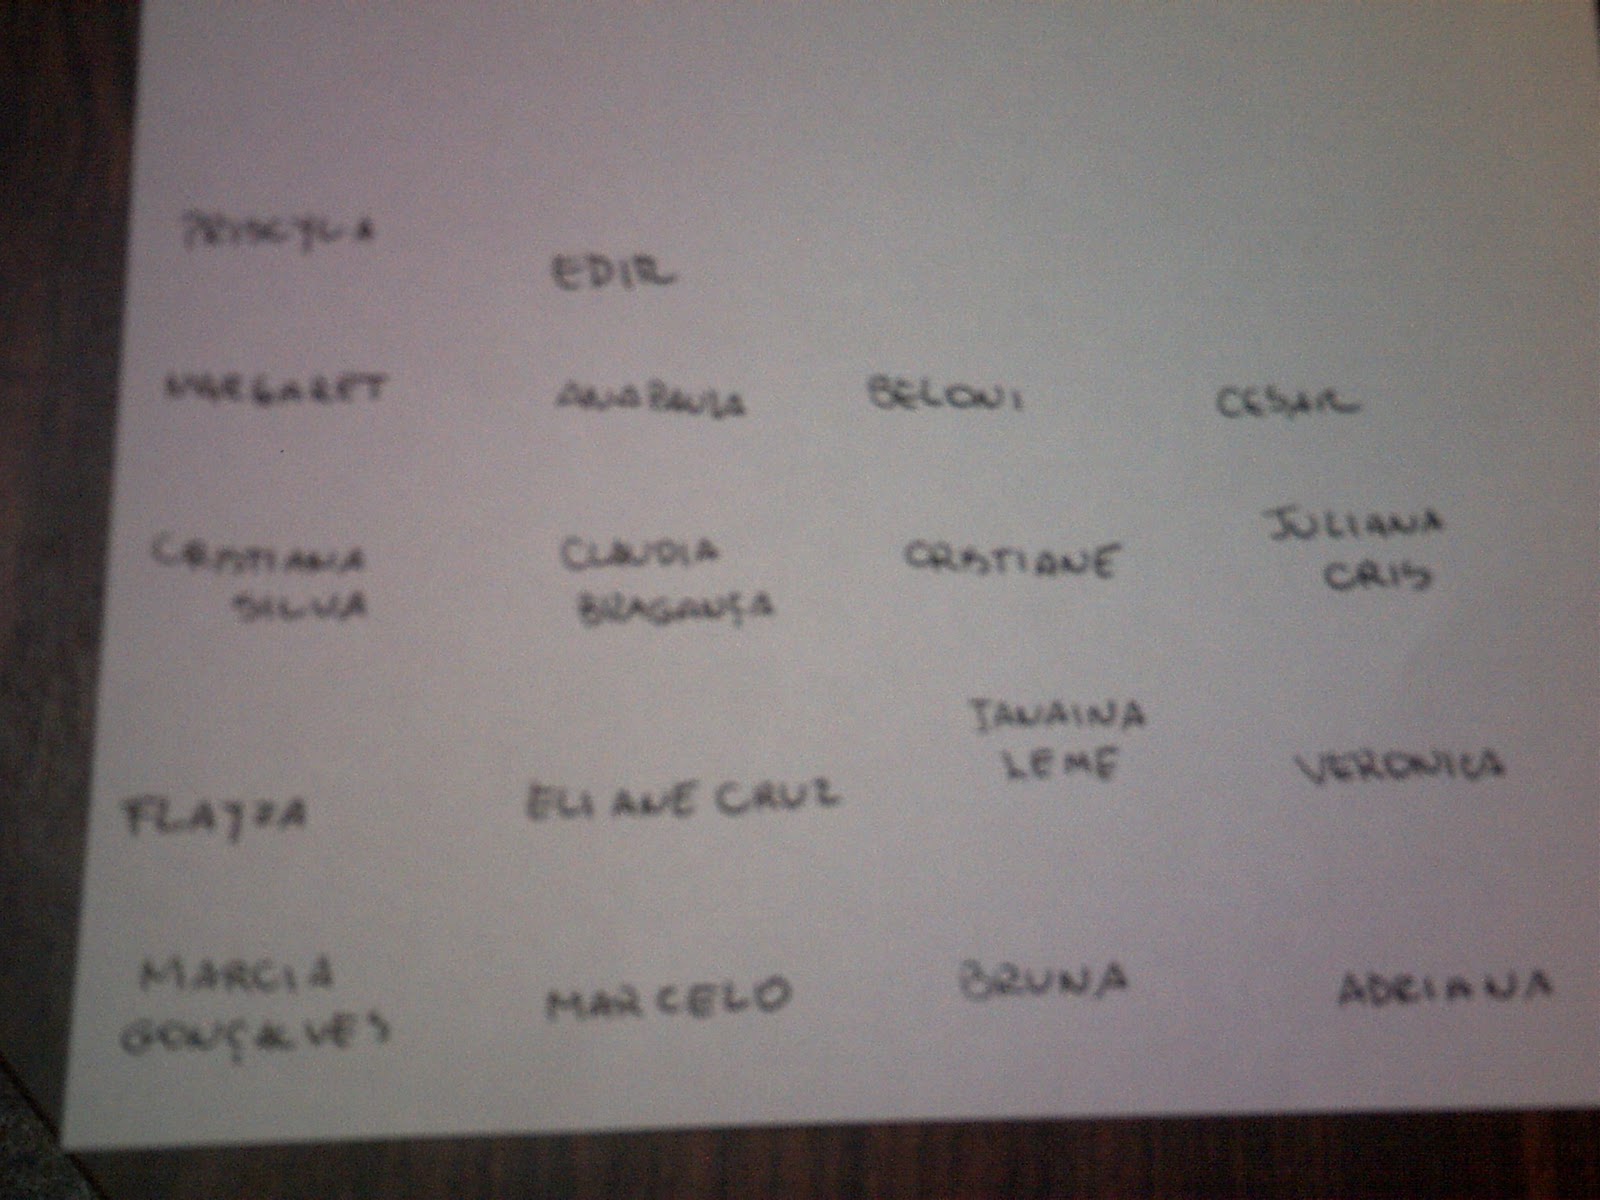 PRISCYLA
EDIR
MARGARET ANA PAULA BELONI CESAR
CRISTIANA SILVA
CLAUDIA BRAGANÇA
CRISTIANE
JULIANA CRIS
FLAYZA
ELIANE CRUZ
JANAINA LEME
VERONICA
MARCIA GONÇALVES
MARCELO
BRUNA
ADRIANA